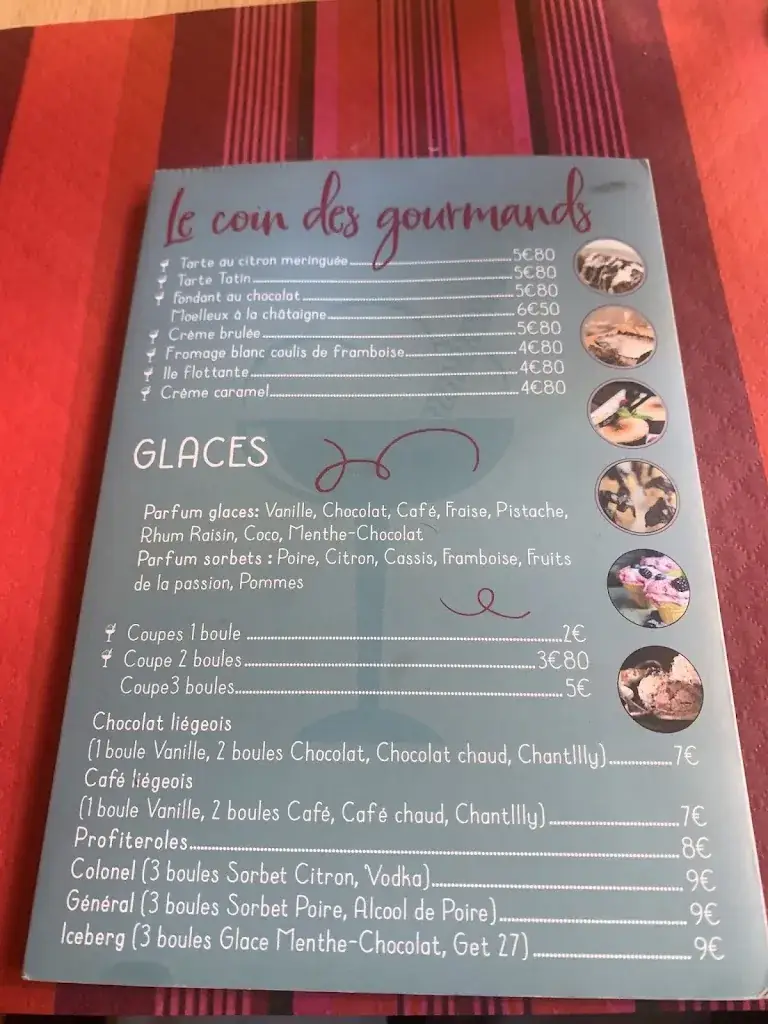 Le coin des gourmands
Tarte au citron meringuée 5€80
Tarte Tatin 5€80
Fondant au chocolat 5€80
Moelleux à la châtaigne 6€50
Crème brulée 5€80
Fromage blanc coulis de Framboise 4€80
Ile Flottante 4€80
Crème caramel 4€80
GLACES
Parfum glaces: Vanille, Chocolat, Café, Fraise, Pistache,
Rhum Raisin, Coco, Menthe-Chocolat
Parfum sorbets : Poire, Citron, Cassis, Framboise, Fruits
de la passion, Pommes
Coupes 1 boule 2€
Coupe 2 boules 3€80
Coupe3 boules 5€
Chocolat liégeois
(1 boule Vanille, 2 boules Chocolat, Chocolat chaud, ChantIlly) 7€
Café liégeois
(1 boule Vanille, 2 boules Café, Café chaud, ChantIlly) 7€
Profiteroles 8€
Colonel (3 boules Sorbet Citron, Vodka) 9€
Général (3 boules Sorbet Poire, Alcool de Poire) 9€
Iceberg (3 boules Glace Menthe-Chocolat, Get 27) 9€